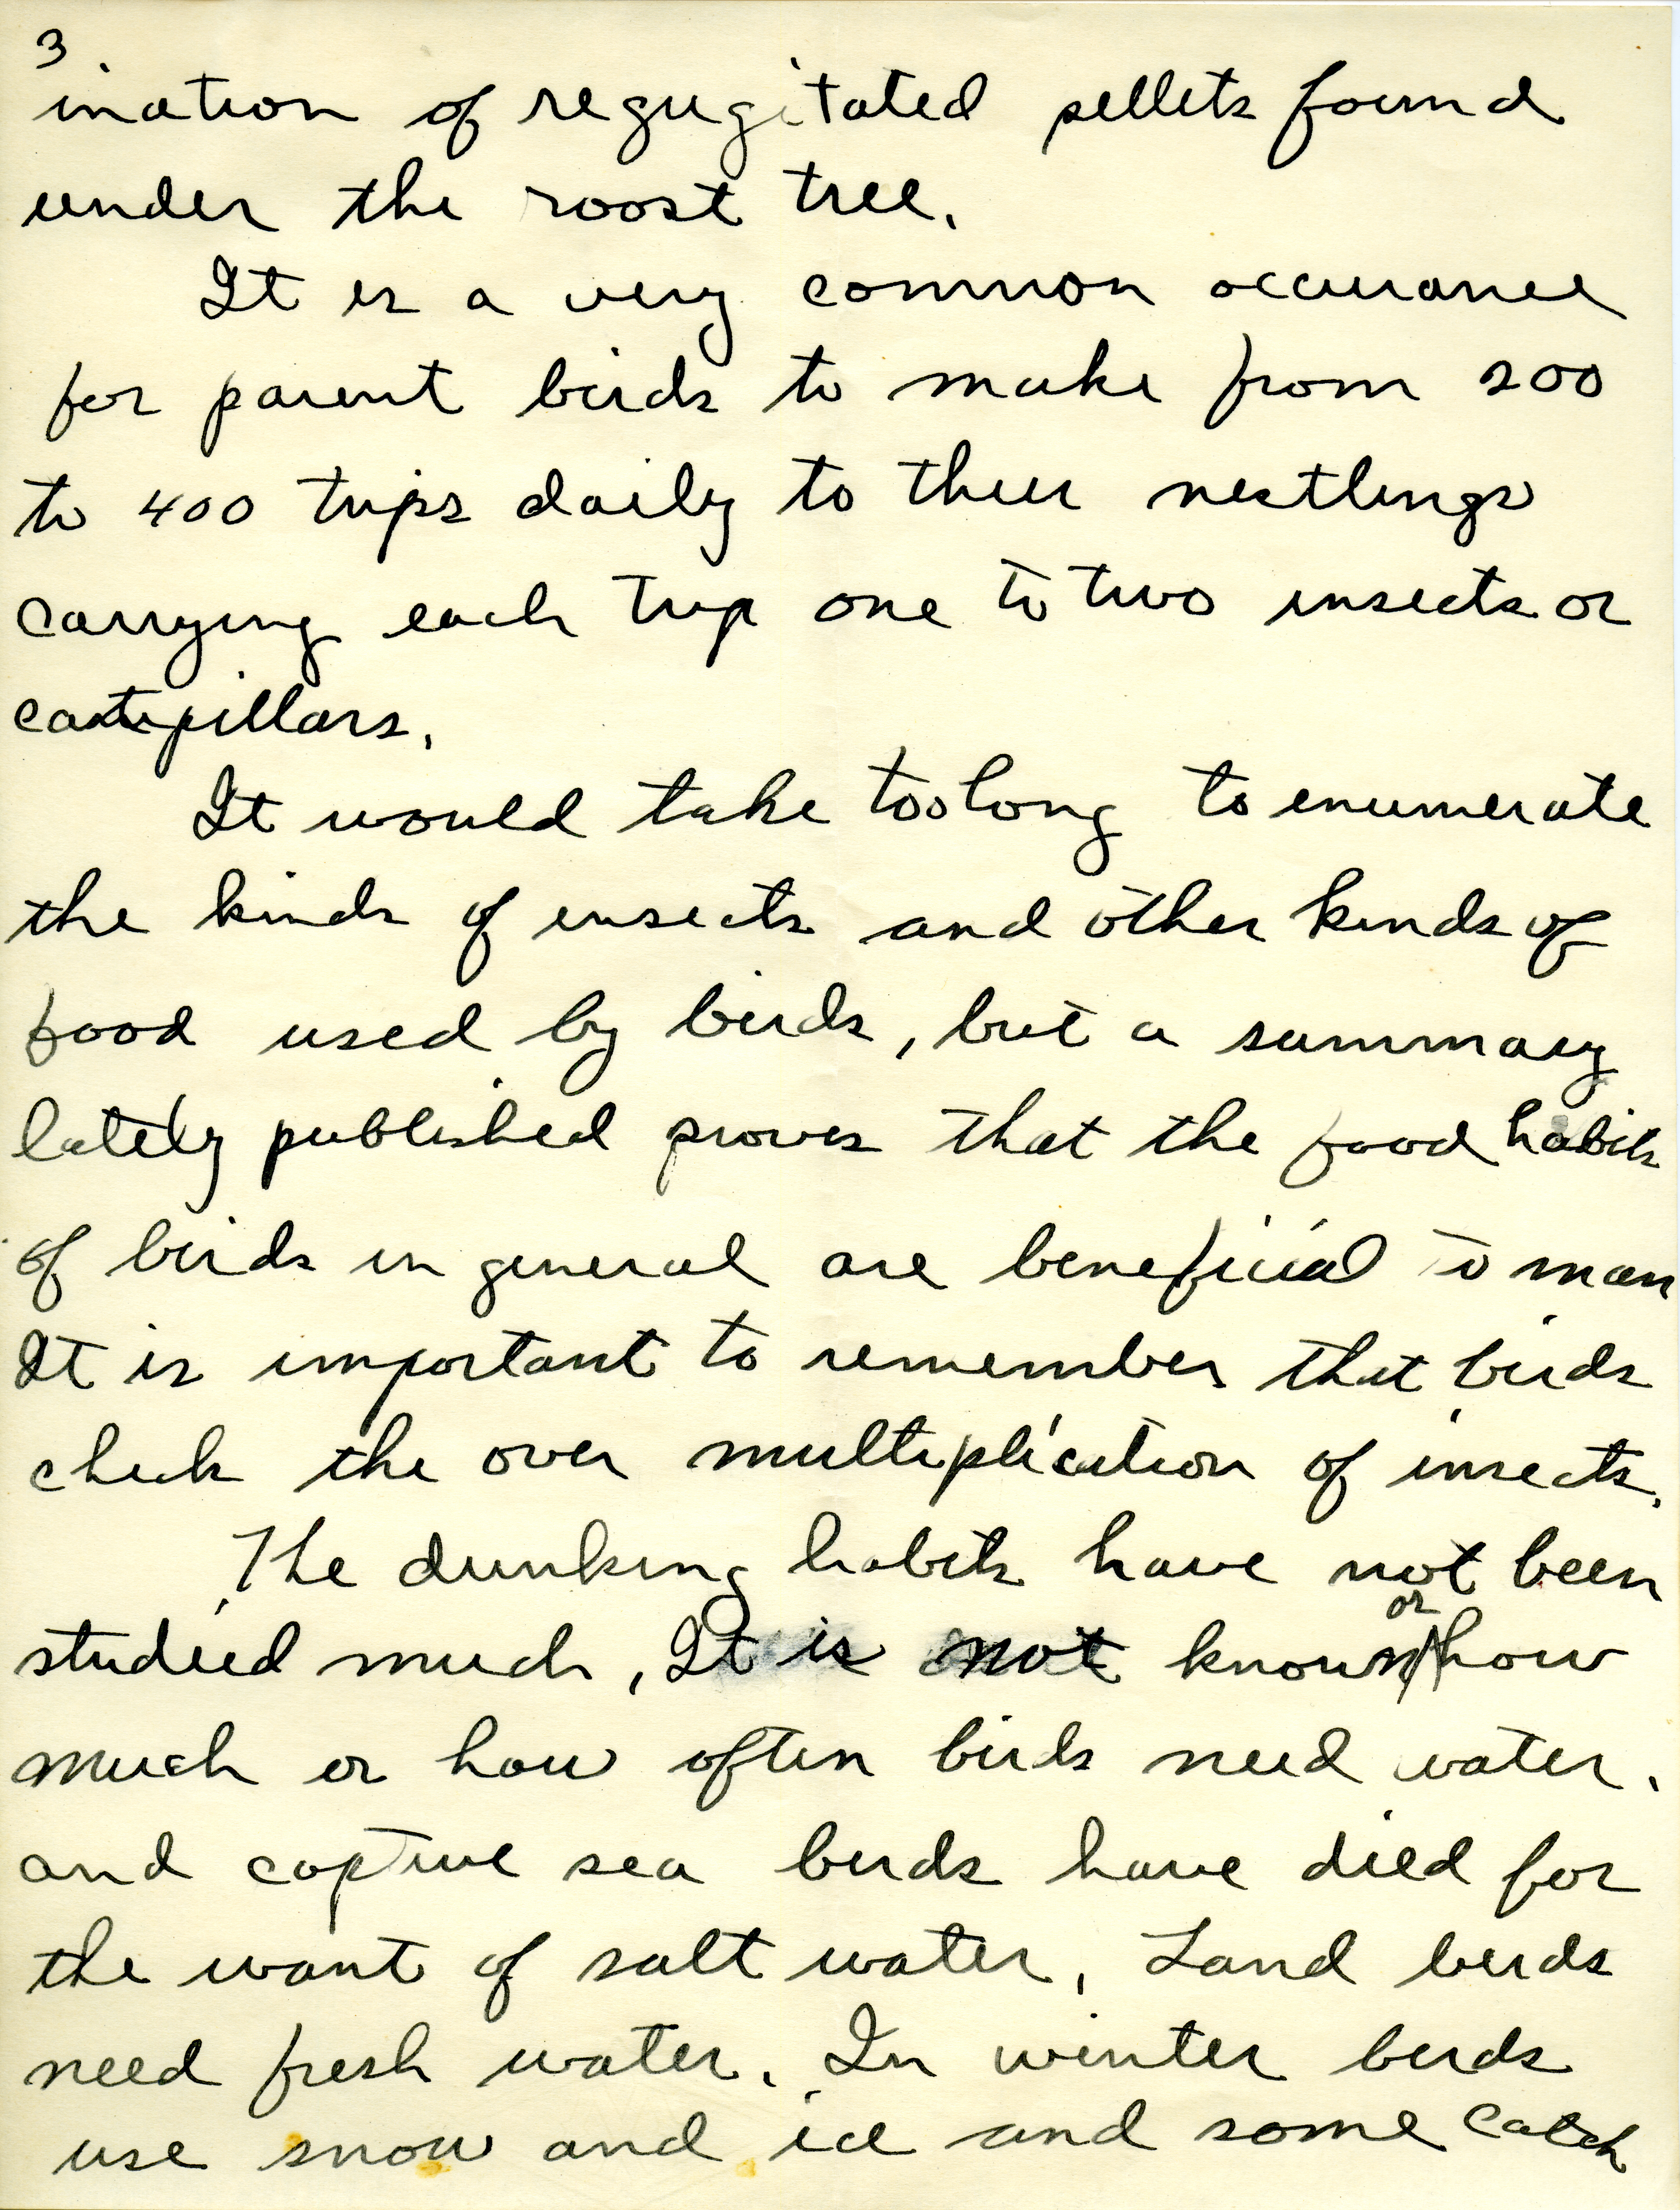 3
ination of regugitated pellets found
under the roost tree.
It is a very common occurance
for parent birds to make from 200
to 400 trips daily to their nestlings
carrying each trip one to two insects or
catepillars.
It would take too long to enumerate
the kinds of insects and other kinds of
food used by birds, but a summary
lately published proves that the food habits
of birds in general are beneficial to man
It is important to remember that birds
check the over multiplication of insects.
The drinking habits have not been
studied much, It is not known or how
much or how often birds need water.
and captive sea birds have died for
the want of salt water, Land birds
need fresh water. In winter birds
use snow and ice and some catch